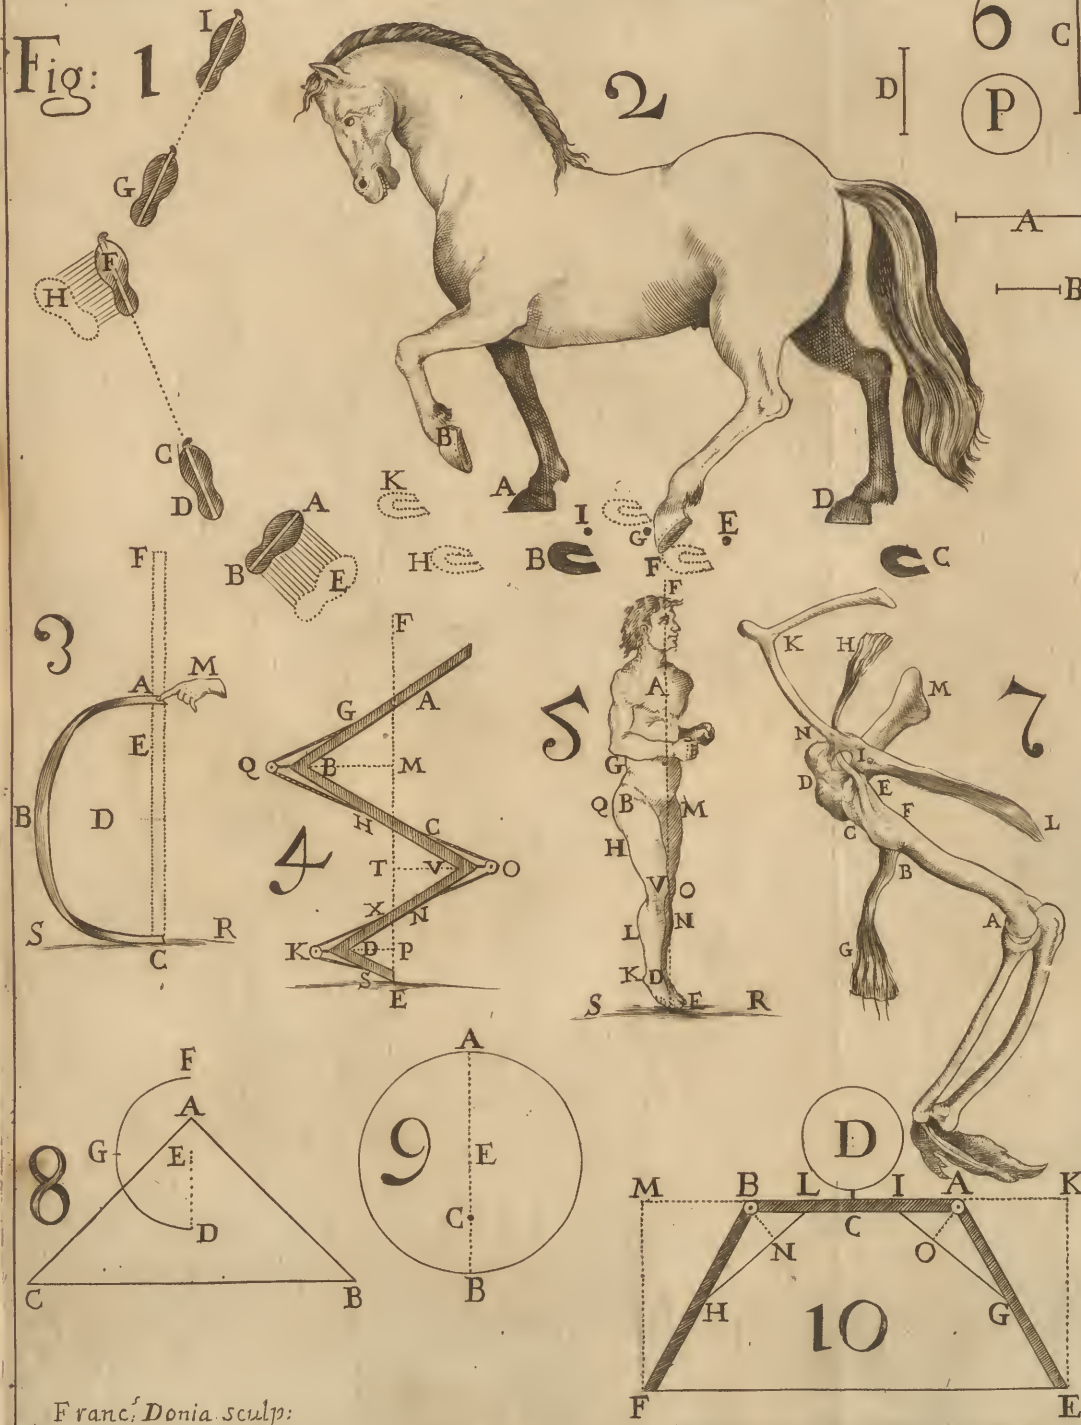 Fig: 1
I
G
F
H
C
D
A
B
E
2
B
A
D
K
I
G
E
H
B
F
C
6
C
D
P
A
B
3
F
A
M
E
B
D
S
R
C
4
F
G
A
Q
B
M
H
C
T
V
O
X
N
K
D
P
S
E
5
F
A
G
Q
B
M
H
V
O
L
N
K
D
E
S
R
7
K
H
M
N
I
D
E
F
C
L
B
A
G
8
F
A
G
E
D
C
B
9
A
E
C
B
10
D
M
B
L
I
A
K
C
N
O
H
G
F
E
Franc.s Donia sculp: